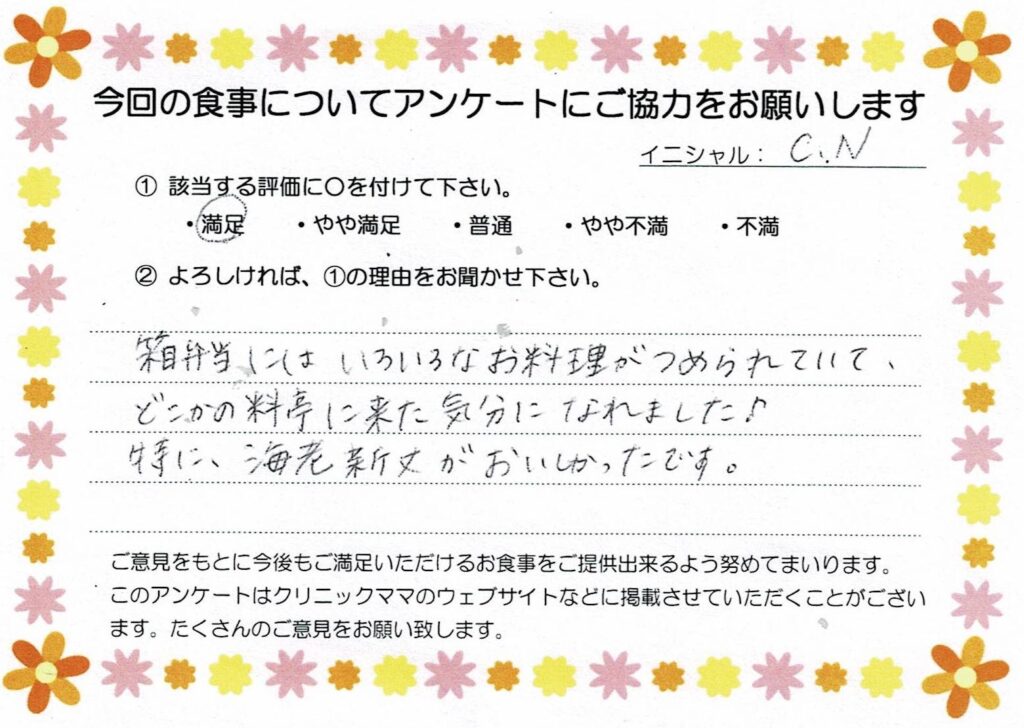 今回の食事についてアンケートにご協力をお願いします
イニシャル： C.N
① 該当する評価に〇を付けて下さい。
・満足 ・やや満足 ・普通 ・やや不満 ・不満
② よろしければ、①の理由をお聞かせ下さい。
箱弁当にはいろいろなお料理がつめられていて、
どこかの料亭に来た気分になれました♪
特に、海老新丈がおいしかったです。
ご意見をもとに今後もご満足いただけるお食事をご提供出来るよう努めてまいります。
このアンケートはクリニックママのウェブサイトなどに掲載させていただくことがござい
ます。たくさんのご意見をお願い致します。